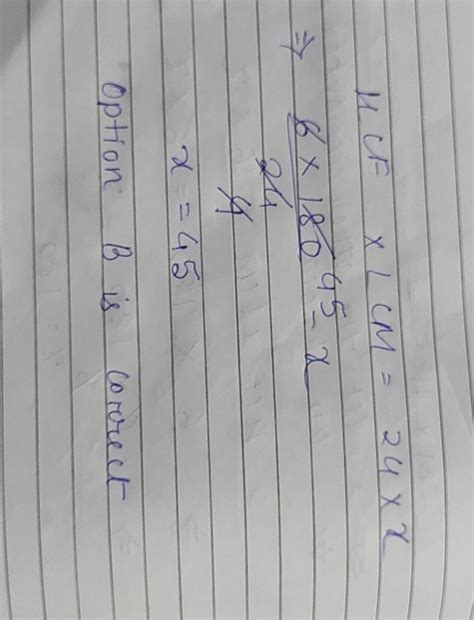 HCF × LCM = 24 × x
⇒ 6 × 180 45 = x
24
4
x = 45
Option B is correct